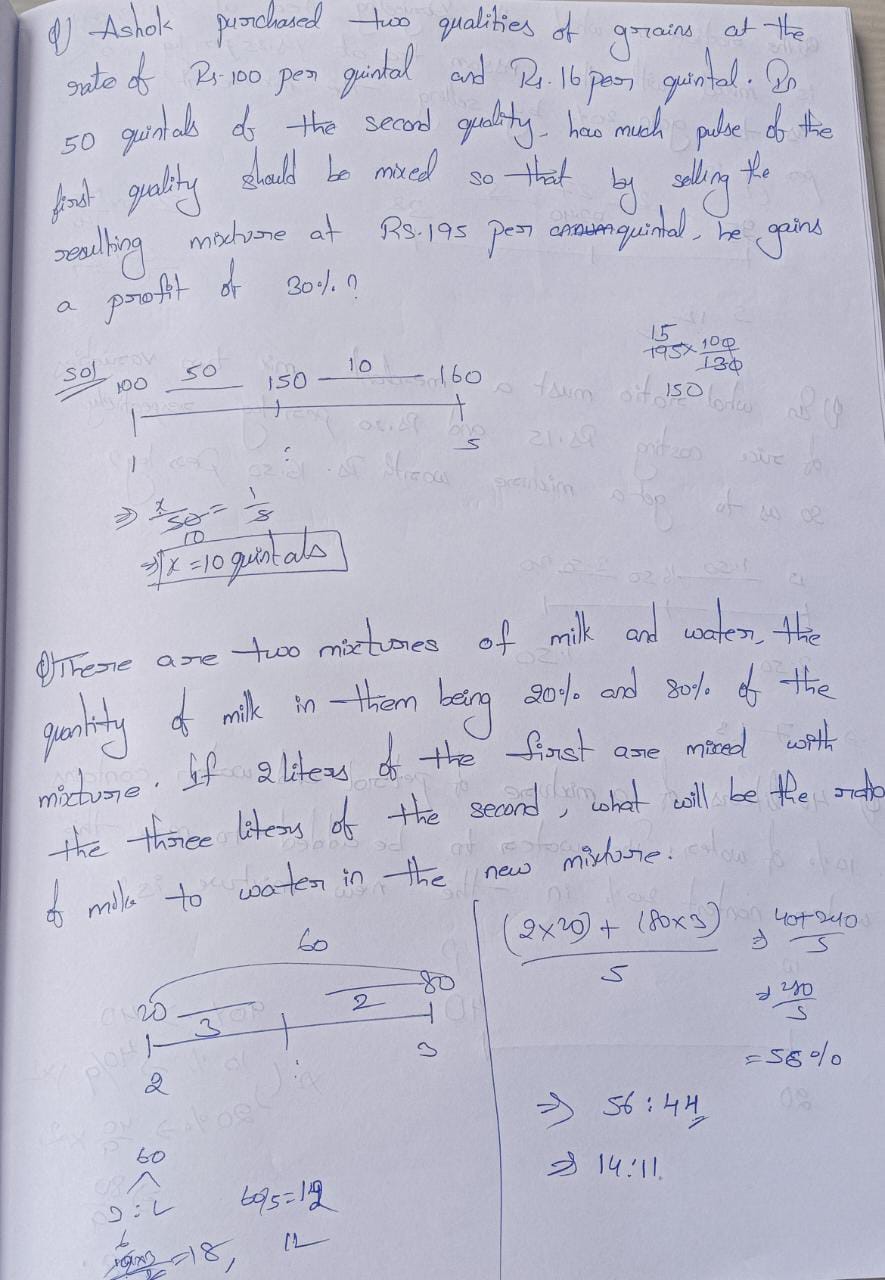 Q) Ashok purchased two qualities of grains at the
rate of Rs.100 per quintal and Rs.16 per quintal. In
50 quintals of the second quality, how much pulse of the
first quality should be mixed so that by selling the
resulting mixture at RS.195 per quintal, he gains
a profit of 30%?
Sol
100 50 150 10 160
1 : 5
15
195 × 100
130
150
⇒ x/50 = 1/5
10
⇒ x = 10 quintals
Q) There are two mixtures of milk and water, the
quantity of milk in them being 20% and 80% of the
mixture. If 2 liters of the first are mixed with
the three liters of the second, what will be the ratio
of milk to water in the new mixture.
60
20 3 2 80
2 : 3
60
3 : 2 60/5 = 12
= 18, 12
(2×20) + (80×3)
5
⇒ 40+240
5
⇒ 280
5
= 56%
⇒ 56 : 44
⇒ 14 : 11.